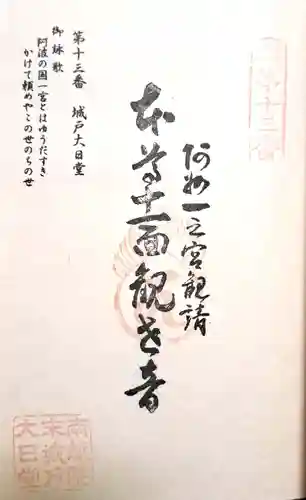 阿州一之宮観請
本尊十一面観世音
第十三番　城戸大日堂
御詠歌
阿波の国一宮とはゆうだすき
かけて頼めやこの世のちの世
大日堂